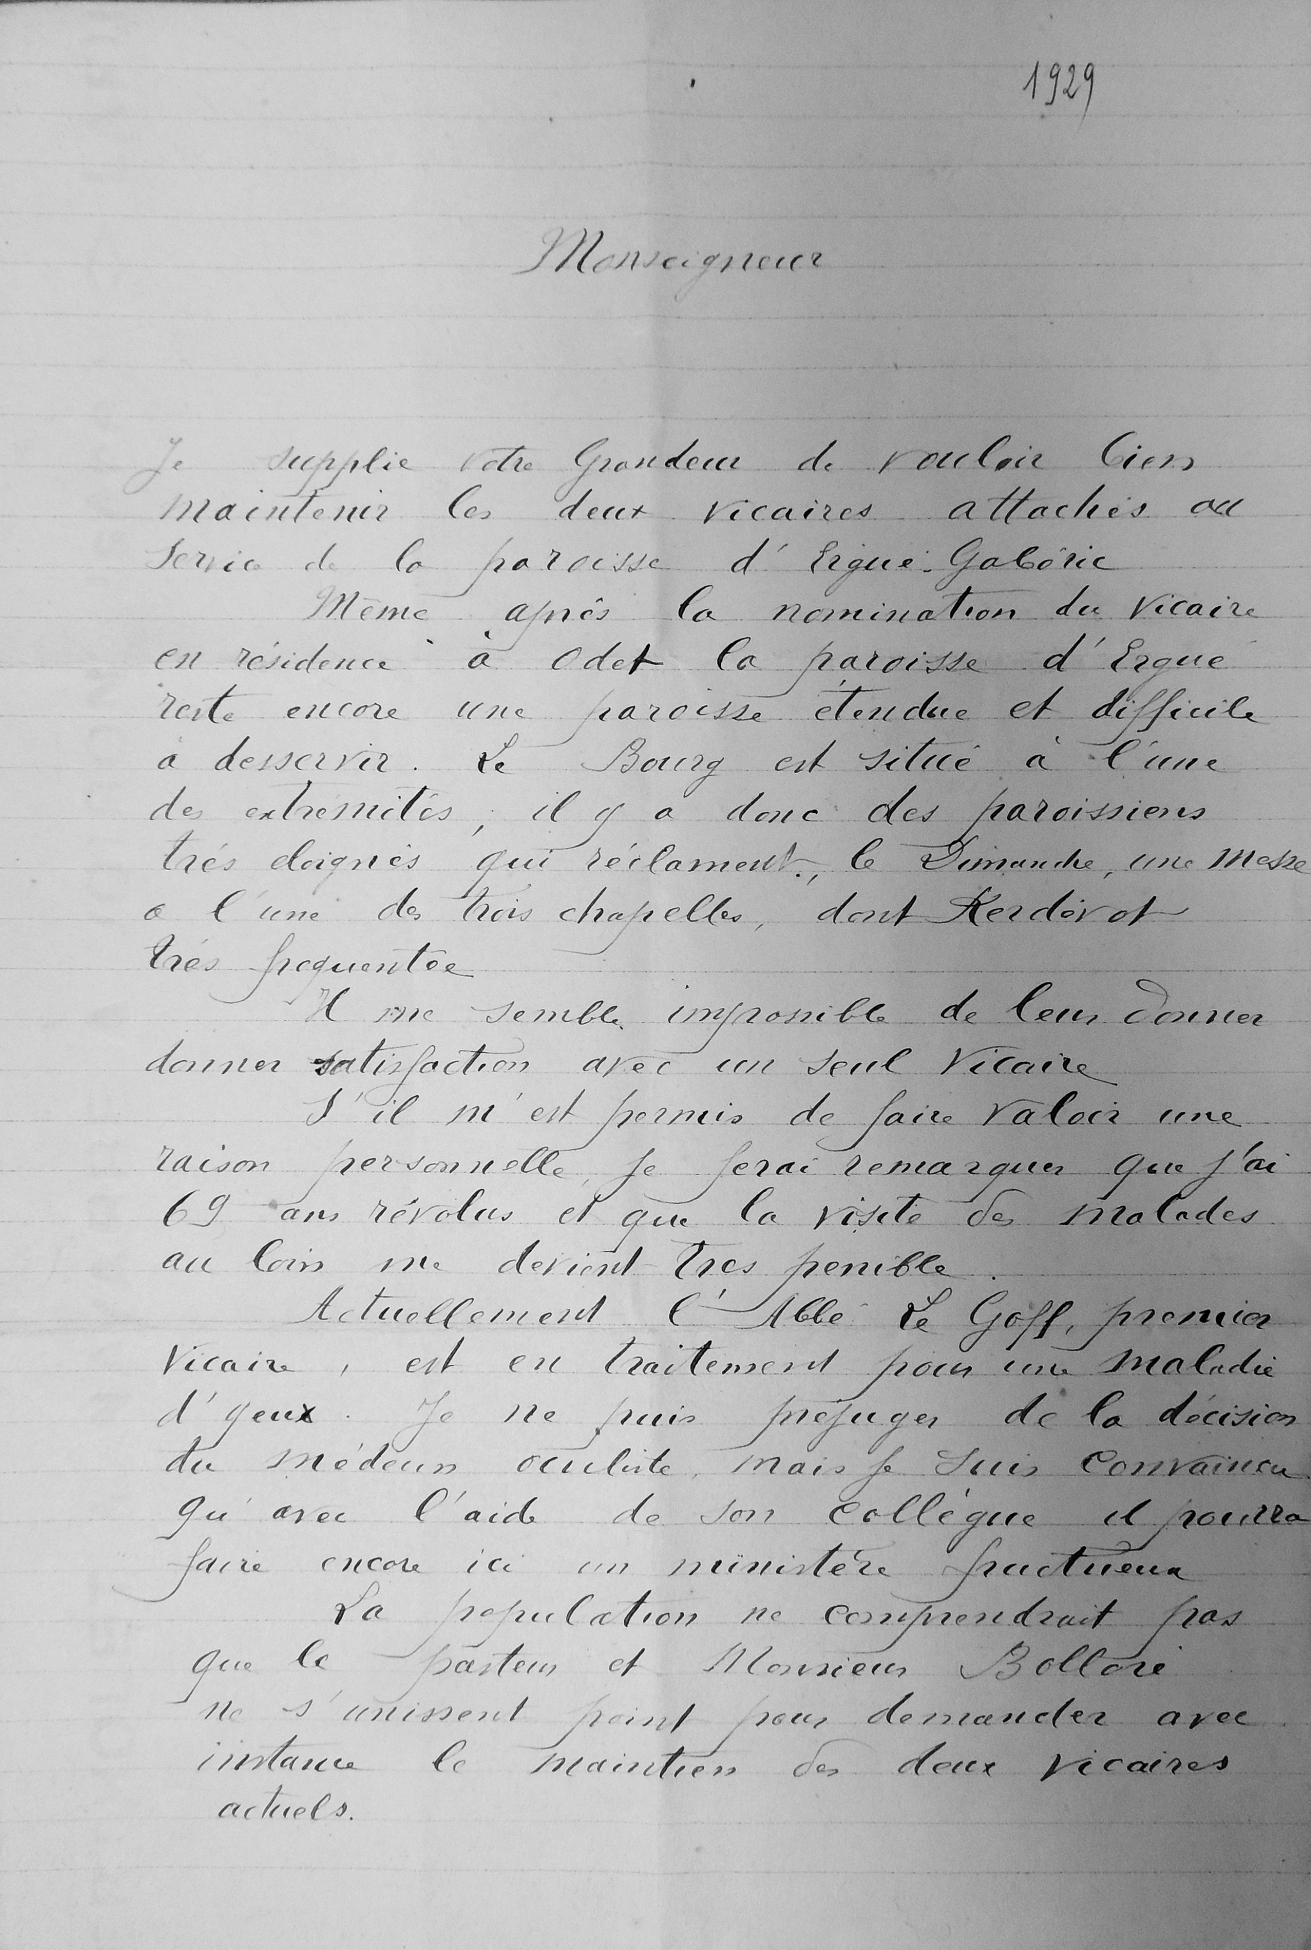 1929
Monseigneur
Je supplie votre Grandeur de vouloir bien
maintenir les deux vicaires attachés au
service de la paroisse d'Ergué-Gabéric
Même après la nomination du Vicaire
en résidence à Odet la paroisse d'Ergué
reste encore une paroisse étendue et difficile
à desservir. Le Bourg est situé à l'une
des extrémités, il y a donc des paroissiens
très éloignés qui réclament, le Dimanche, une messe
à l'une des trois chapelles, dont Kerdévot
très frequentée
Il me semble impossible de leur donner
donner satisfaction avec un seul Vicaire
S'il m'est permis de faire valoir une
raison personnelle, je ferai remarquer que j'ai
69 ans révolus et que la visite des malades
au loin me devient très penible.
Actuellement l'Abbé Le Goff, premier
Vicaire, est en traitement pour une maladie
d'yeux. Je ne puis préjuger de la décision
du médecin oculiste, mais je suis convaincu
qu'avec l'aide de son collègue il pourra
faire encore ici un ministère fructueux
La population ne comprendrait pas
que le pasteur et Monsieur Bolloré
ne s'unissent point pour demander avec
instance le maintien des deux vicaires
actuels.